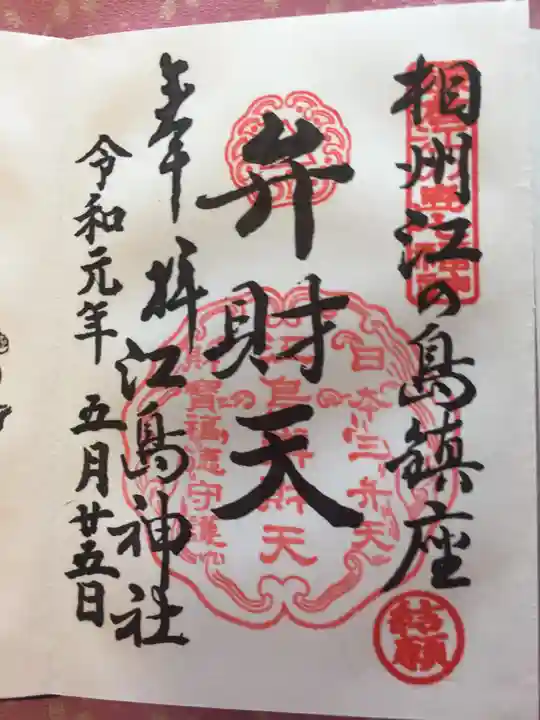 相州江の島鎮座
弁財天
奉拝 江島神社
令和元年 五月廿五日
日本三弁天
江島弁財天
寶福徳守護
結願